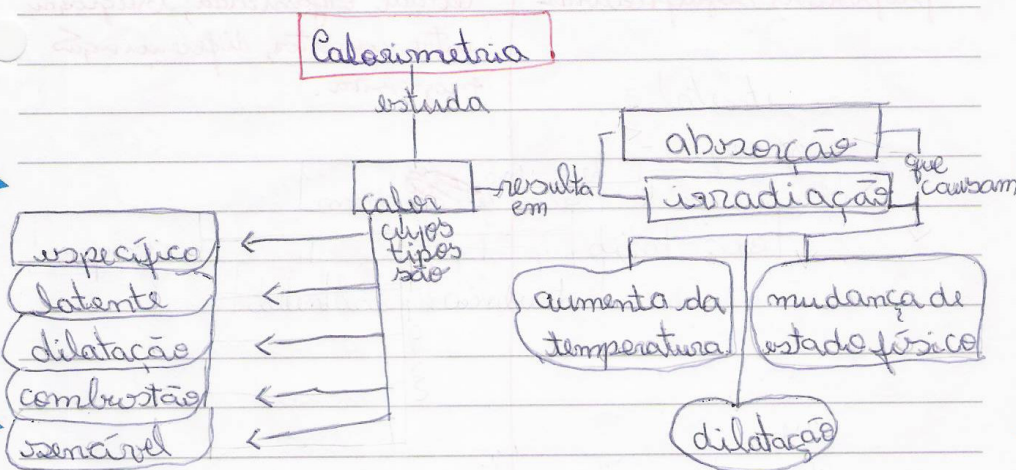 Calorimetria
estuda
calor
resulta
em
absorção
irradiação
que
causam
cujos
tipos
são
específico
latente
dilatação
combustão
sencível
aumento da
temperatura
mudança de
estado físico
dilatação